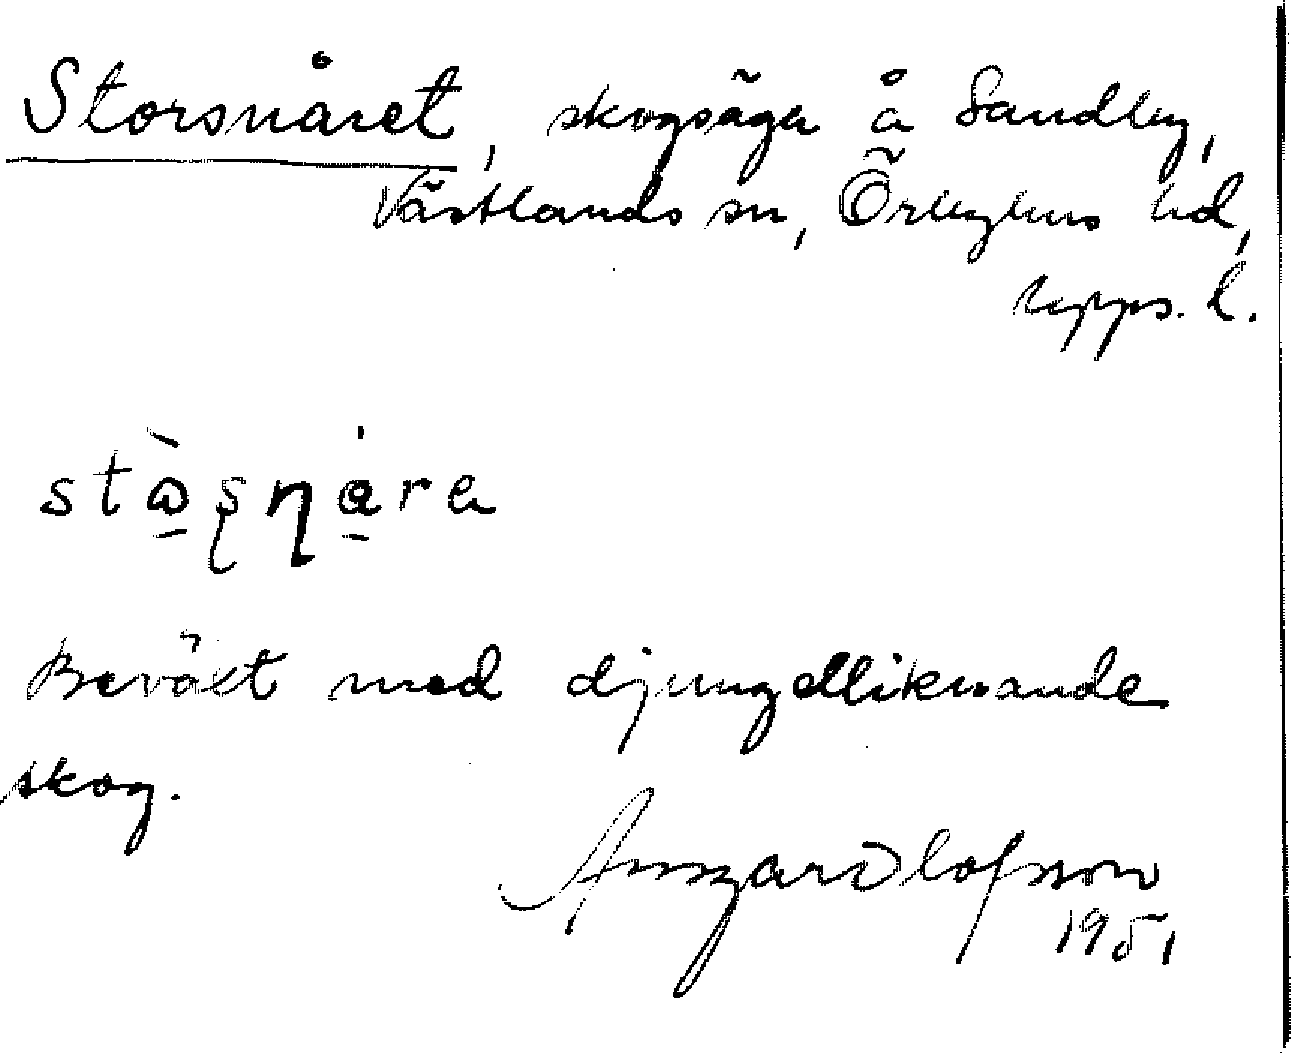 Storsnåret, skogsäga å Sandby,
Västlands sn, Örbyhus hd,
Upps. l.
Beväxt med djungelliknande
skog.
Ansgar Olofsson
1951